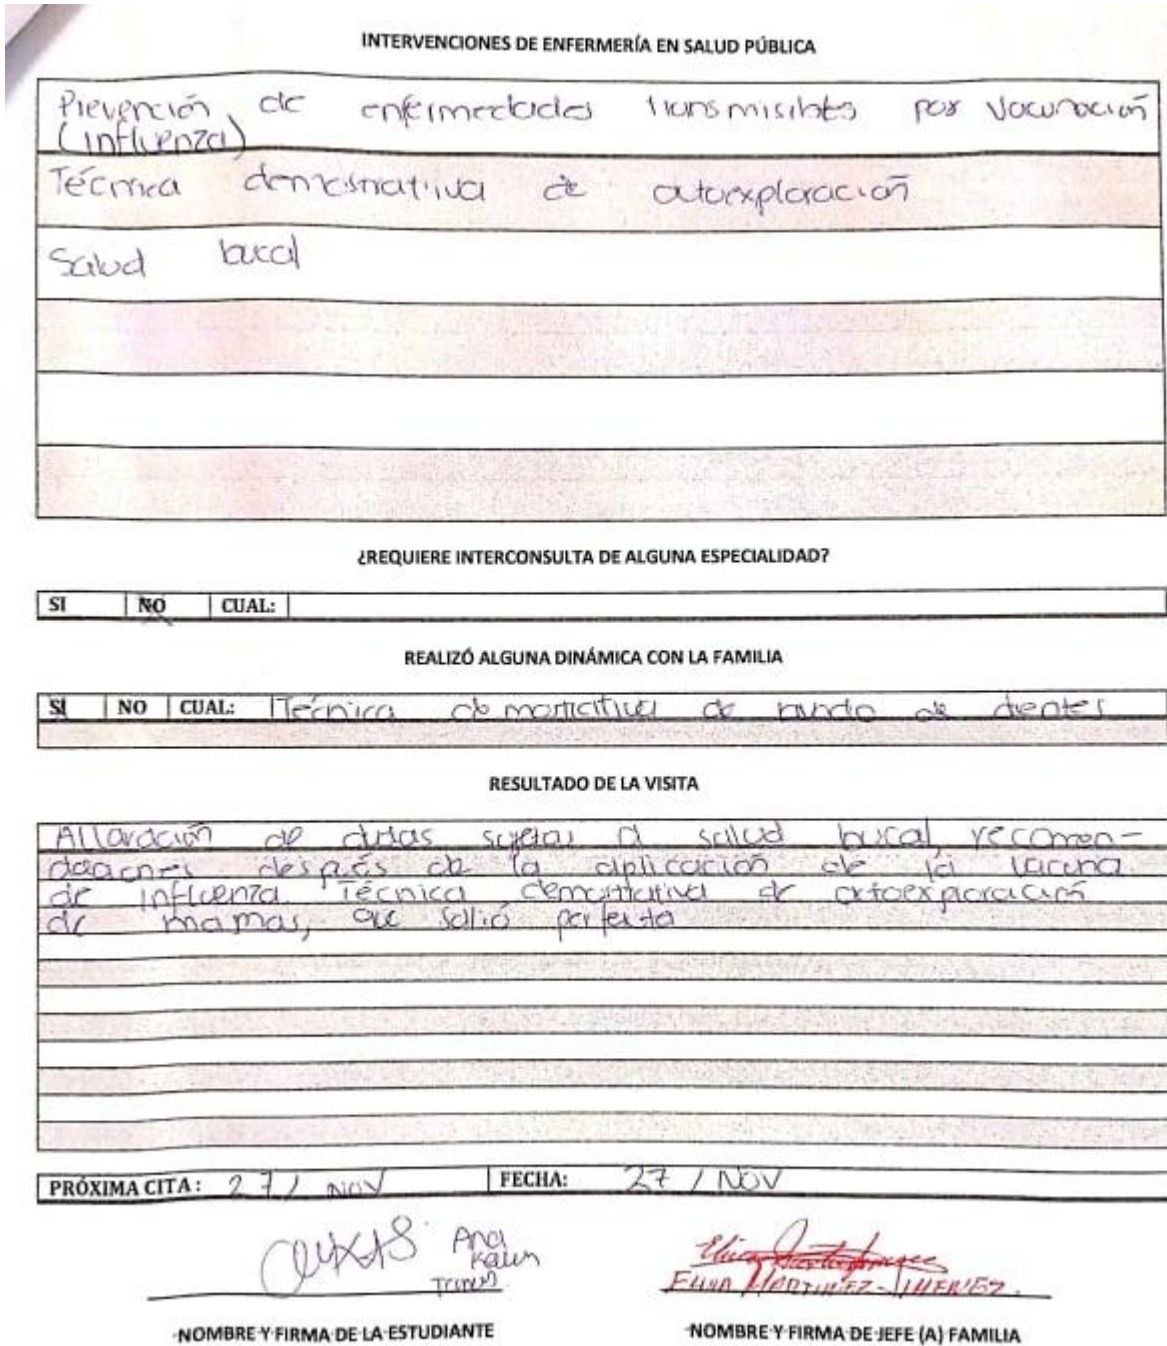 INTERVENCIONES DE ENFERMERÍA EN SALUD PÚBLICA
Prevención de enfermedades transmisibles por vacunación
(influenza)
Técnica demostrativa de autoexploración
Salud bucal
¿REQUIERE INTERCONSULTA DE ALGUNA ESPECIALIDAD?
SI NO CUAL:
REALIZÓ ALGUNA DINÁMICA CON LA FAMILIA
SI NO CUAL: Técnica de dientes
RESULTADO DE LA VISITA
de dudas a salud bucal, recomen-
daciones después de la aplicación de la vacuna
de influenza Técnica demostrativa de autoexploración
de mamas, que salió perfecta
PRÓXIMA CITA: 27 / NOV FECHA: 27 / NOV
Ana
Karen
MARTINEZ JIMENEZ
NOMBRE Y FIRMA DE LA ESTUDIANTE NOMBRE Y FIRMA DE JEFE (A) FAMILIA